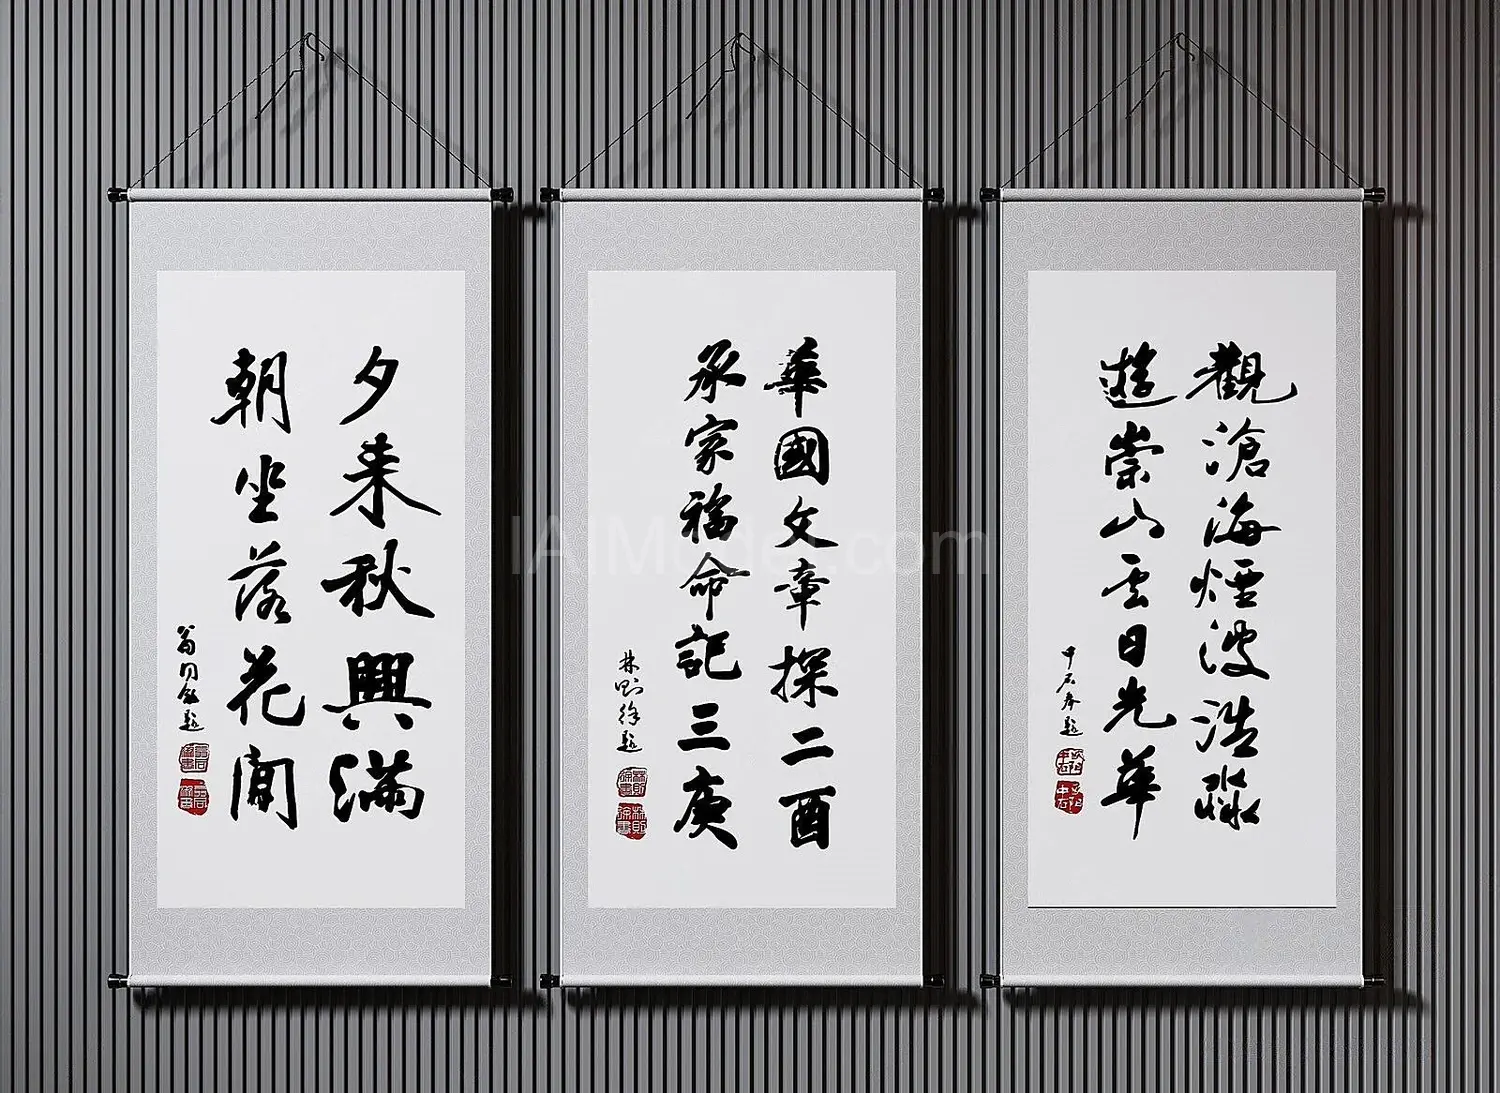 觀滄海煙波浩淼
遊崇山云日光華
中石奉題
華國文章探二酉
承家福命記三庚
林則徐題
夕来秋興滿
朝坐落花間
翁同龢題
IAIModel.com